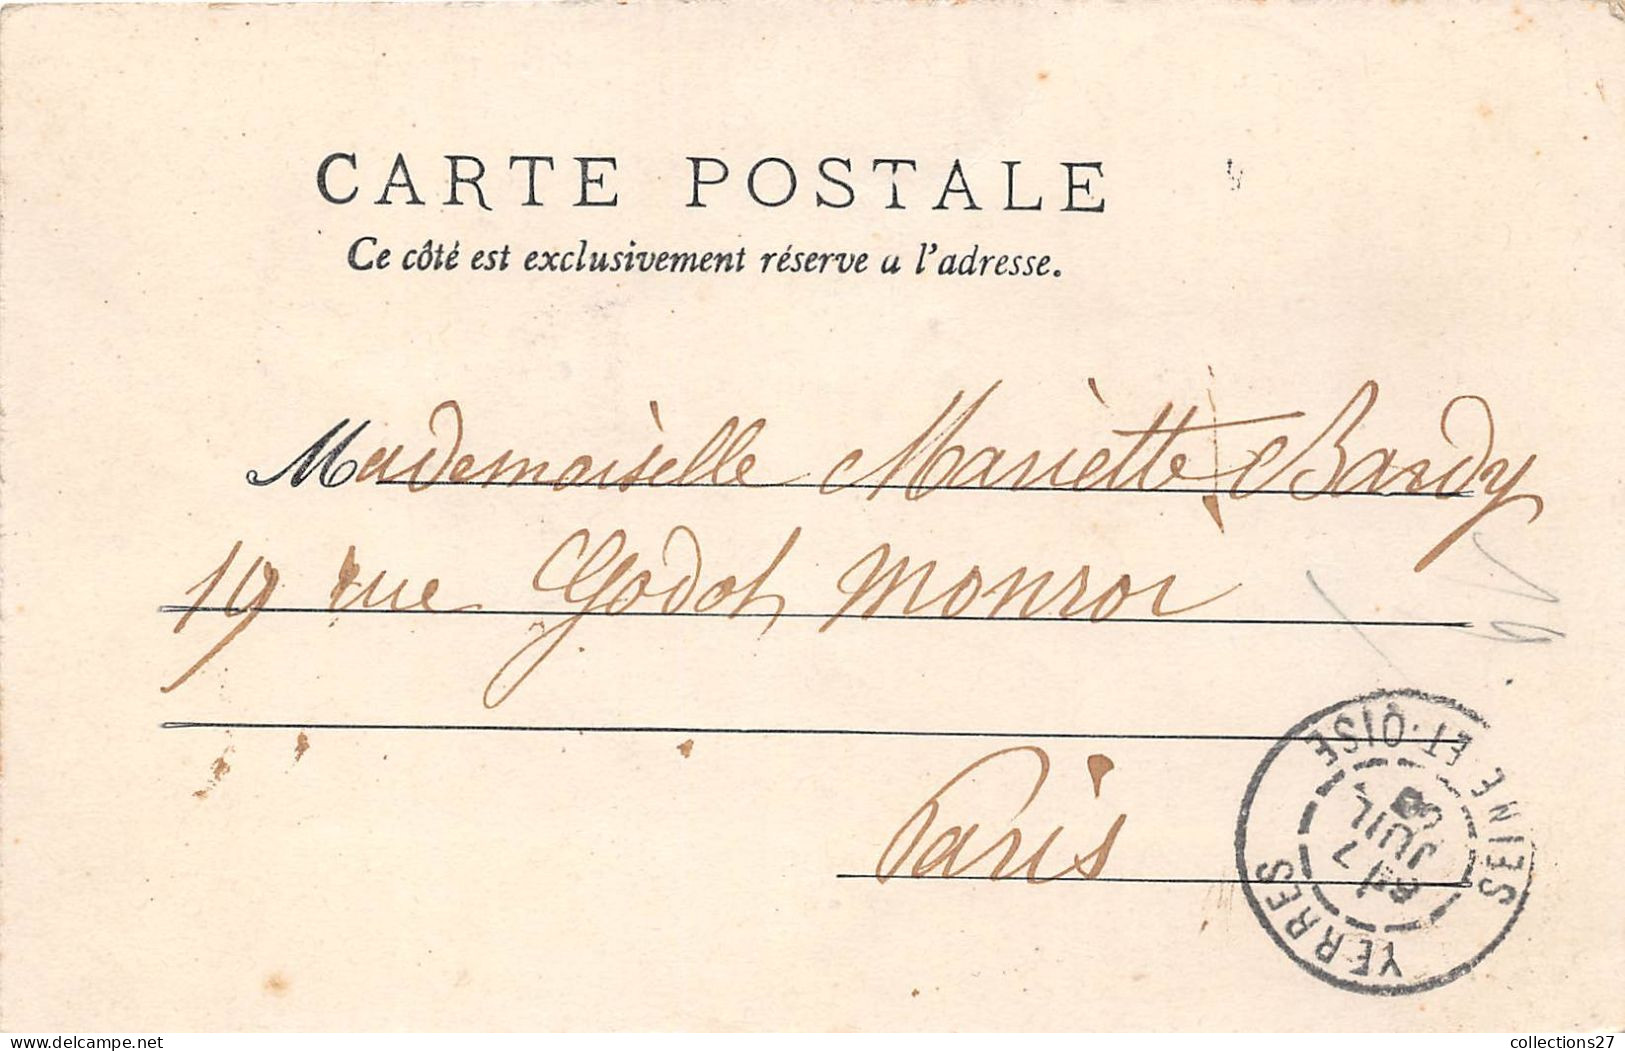 CARTE POSTALE
Ce côté est exclusivement réserve a l'adresse.
Mademoiselle Mariette Bardy
19 rue Godot Monroi
Paris
19
YERRES
SEINE-ET-OISE
7
JUIL
www.delcampe.net
collections27